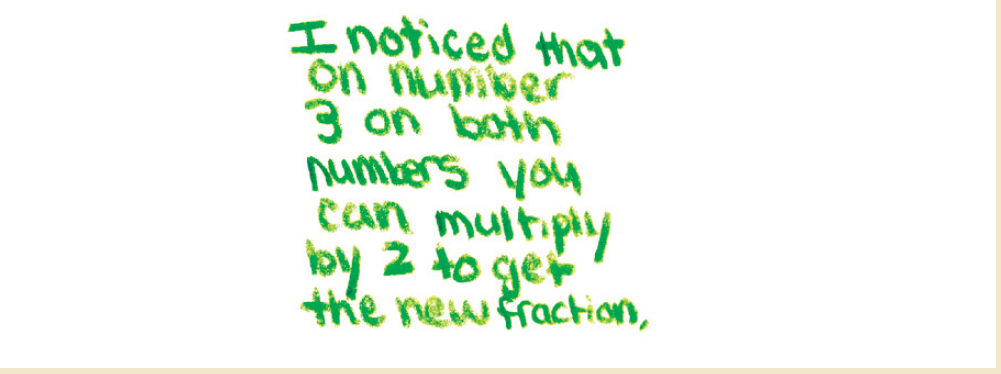 I noticed that
on number
3 on both
numbers you
can multiply
by 2 to get
the new fraction,